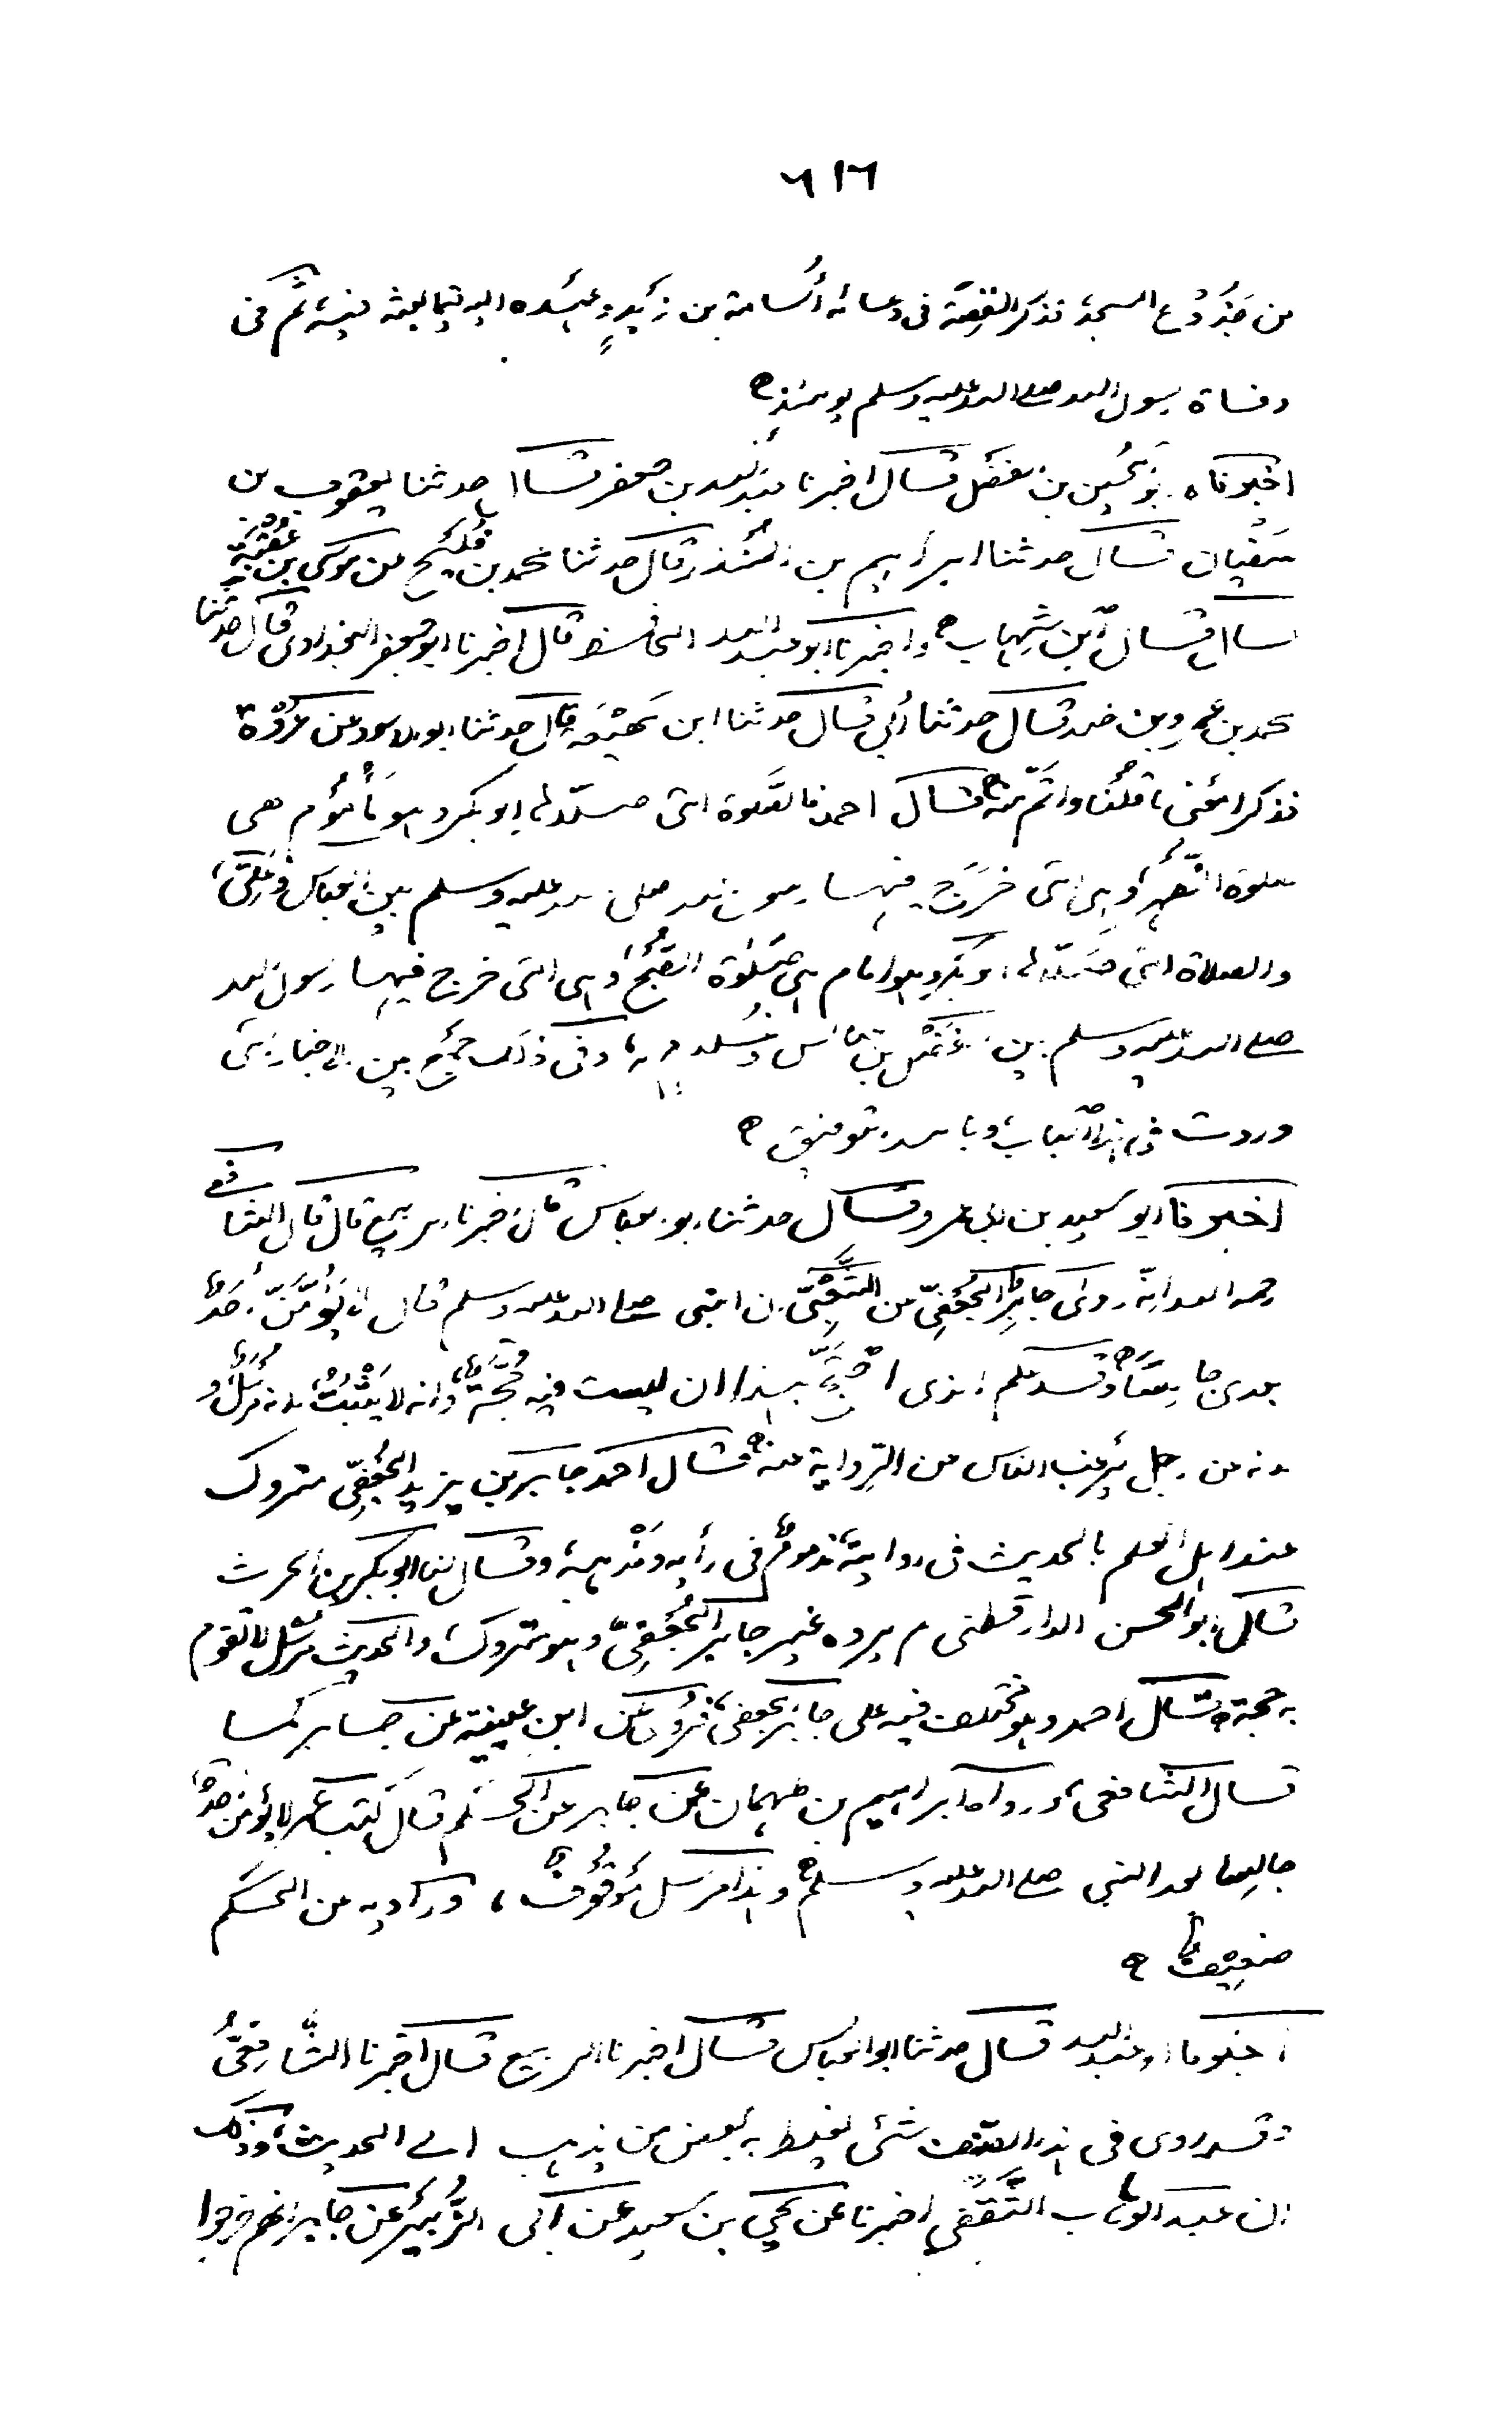 ٦١٦
من جُذُوْعِ المسجد، فذكر القصة في دعائه أُسامة بن زيدٍ وعهده اليه فيما بعثه فيه، ثُمَّ في
وفاة رسول الله صلى الله عليه وسلم يومئذٍ ه
اخبرناه ابو الحُسين بن الفضل قال اخبرنا عبد الله بن جعفر قال حدثنا يعقوب بن
سُفيان قال حدثنا ابراهيم بن المُنذر قال حدثنا محمد بن فُلَيْح عن موسى بن عُقْبَةَ
قال قال ابن شِهاب ه واخبرنا ابو عبد الله الحافظ قال اخبرنا ابو جعفر البغدادي قال حدثنا
محمد بن عمرو بن خالد قال حدثنا أبي قال حدثنا ابن لَهِيْعَة قال حدثنا ابو الاسود عن عُرْوَة
فذكر معنى ما قلنا واتمّ منه ه قال احمد فالصَّلٰوة التي صلّاها ابو بكر وهو مَأْمُوم هي
صلوة الظُّهر، وهي التي خَرَجَ فيها رسول الله صلى الله عليه وسلم بين العباس وعَلِيّ،
والصلاة التي صَلّاها ابو بكر وهو امام هي صَلٰوة الصُّبْح، وهي التي خرج فيها رسول الله
صلى الله عليه وسلم بين الفَضْل بن عباس وغُلام له، وفي ذلك جَمْعٌ بين الاخبار التي
وردت في هذا الباب، وبالله التوفيق ه
اخبرنا ابو سعيد بن ابي عمرو قال حدثنا ابو العباس قال اخبرنا الربيع قال قال الشافعي
رحمه الله انه روى جابِر الجُعْفِيّ عن الشَّعْبِيّ ان النبي صلى الله عليه وسلم قال لا يَؤُمَّنَّ أحدٌ
بعدي جالِسًا ه وقد علم الذي احْتَجَّ بهذا ان ليست فيه حُجَّةٌ، وانه لا يَثْبُتُ، لانه مُرْسَلٌ و
لانه عن رجل يَرغب الناس عن الرِّواية عنه ه قال احمد جابر بن يزيد الجُعْفِيّ متروك
عند اهل العلم بالحديث في روايته، مذمومٌ في رأيه ومَذْهبه، وقال لنا ابو بكر بن الحرث
قال ابو الحسن الدارقطني لم يروه غير جابر الجُعْفِيّ، وهو متروك، والحديث مُرْسل لا تقوم
به حجة ه قال احمد وهو مختلف فيه على جابر الجعفي، فرُوِي عن ابن عيينة عن جابر كما
قال الشافعي، ورواه ابراهيم بن طهمان عن جابر عن الحكم قال كتب عمر لا يؤمن احدٌ
جالِسًا بعد النبي صلى الله عليه وسلم ه وهذا مرسل مَوْقُوفٌ، وراويه عن الحكم
ضعيفٌ ه
اخبرنا ابو عبد الله قال حدثنا ابو العباس قال اخبرنا الربيع قال اخبرنا الشَّافِعيُّ
وقد روي في هذا الصنف شيء يغلط به بعض من يذهب الى الحديث، وذلك
ان عبد الوهاب الثَّقَفي اخبرنا عن يحيى بن سعيد عن ابي الزُّبَيْر عن جابر انهم خرجوا